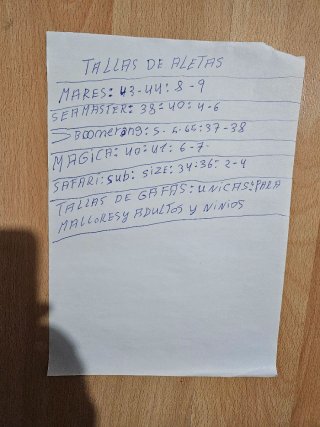 TALLAS DE ALETAS
MARES: 43-44: 8-9
SEAMASTER: 38: 40: 4-6
Boomerang: 5. 5.65: 37-38
MAGICA: 40: 41: 6-7.
SAFARI: sub: SIZE: 34: 36: 2-4
TALLAS DE GAFAS: UNICAS: PARA
MALLORES Y ADULTOS Y NINIOS